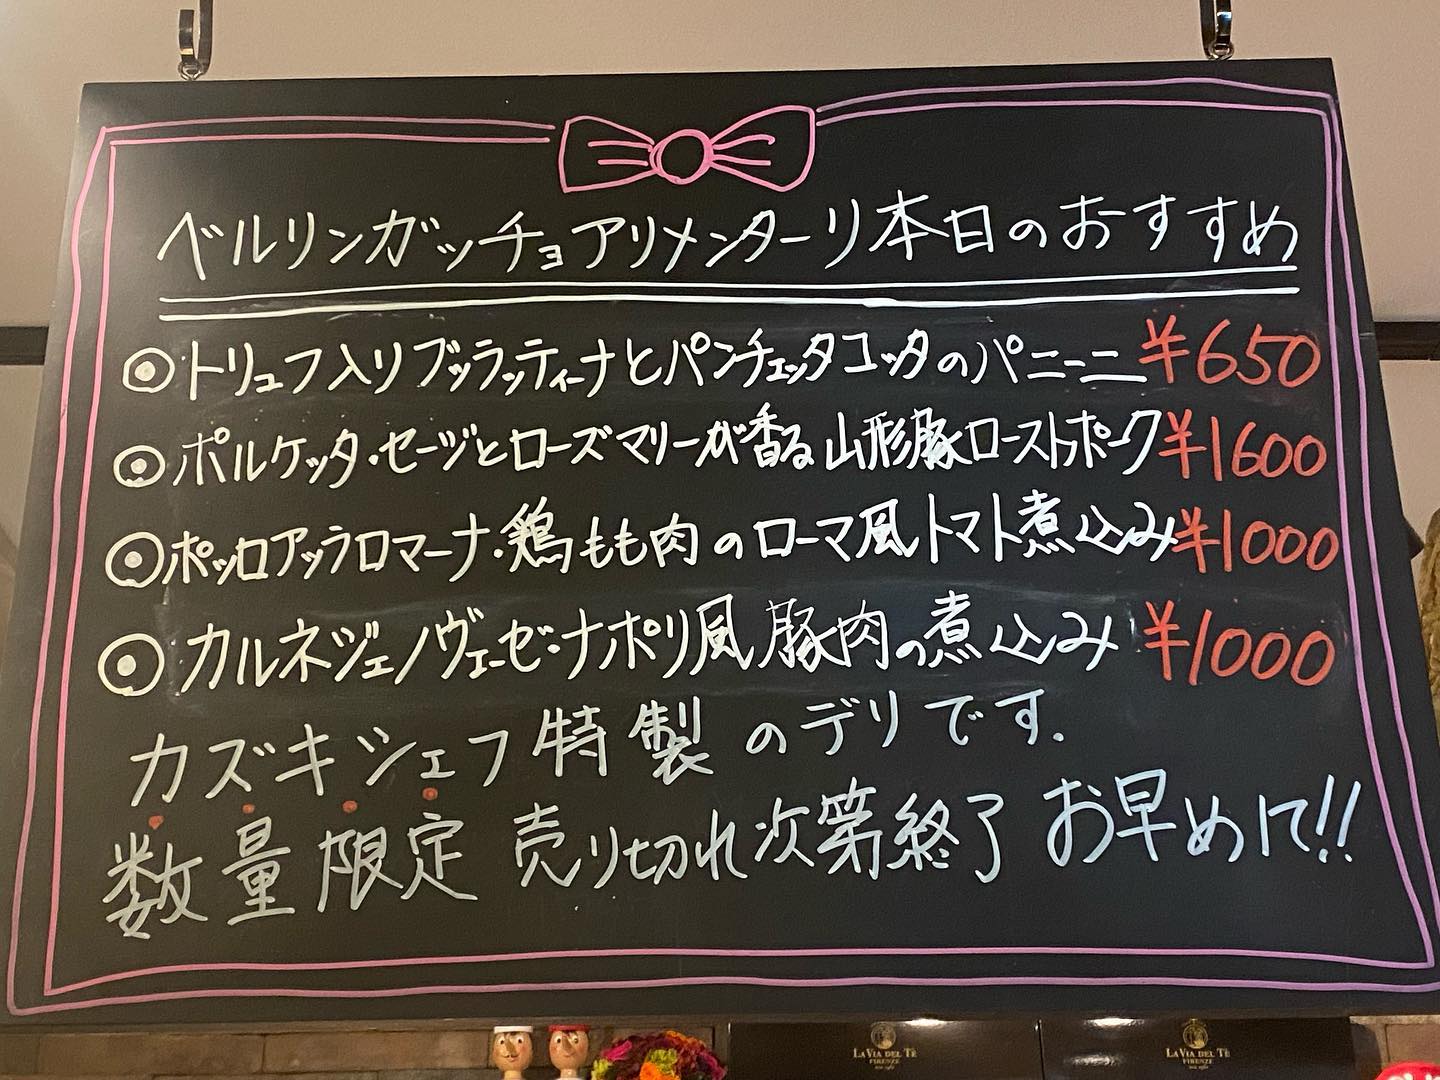 ベルリンガッチョアリメンターリ本日のおすすめ
◎トリュフ入りブッラッティーナとパンチェッタコッタのパニーニ ¥650
◎ポルケッタ・セージとローズマリーが香る山形豚ローストポーク ¥1600
◎ポッロアッラロマーナ・鶏もも肉のローマ風トマト煮込み ¥1000
◎カルネジェノヴェーゼ・ナポリ風豚肉の煮込み ¥1000
カズキシェフ特製のデリです.
数量限定 売り切れ次第終了 お早めに!!
LA VIA DEL TÈ
FIRENZE
LA VIA DEL TÈ
FIRENZE